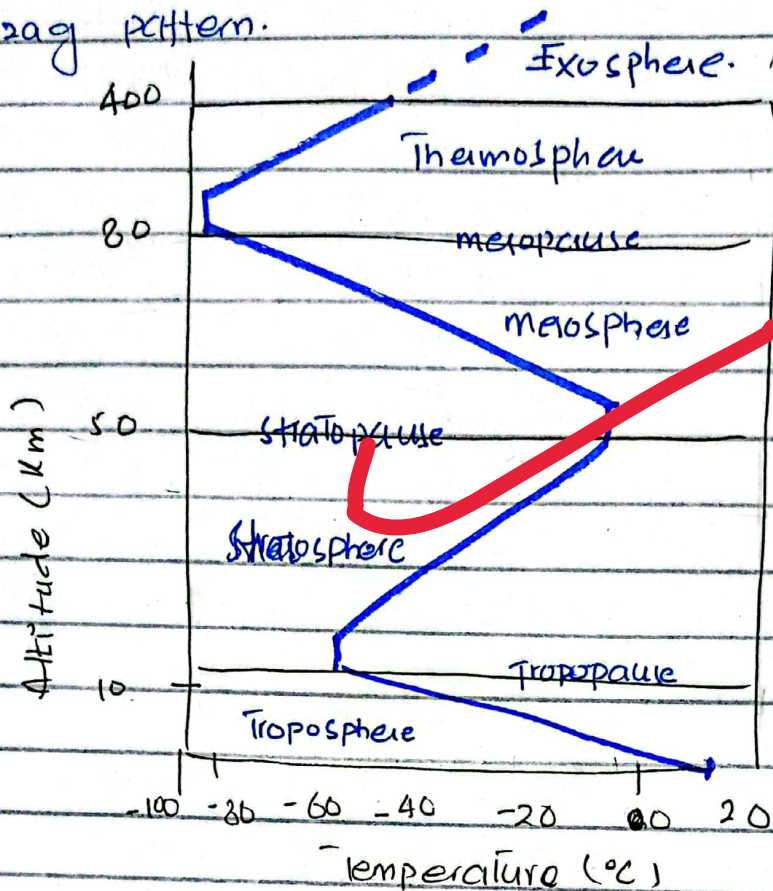 zag pattern.
Exosphere.
400
Thermosphere
80
mesopause
mesosphere
50
stratopause
Altitude (Km)
stratosphere
10
Tropopause
Troposphere
-100 -80 -60 -40 -20 00 20
Temperature (°C)